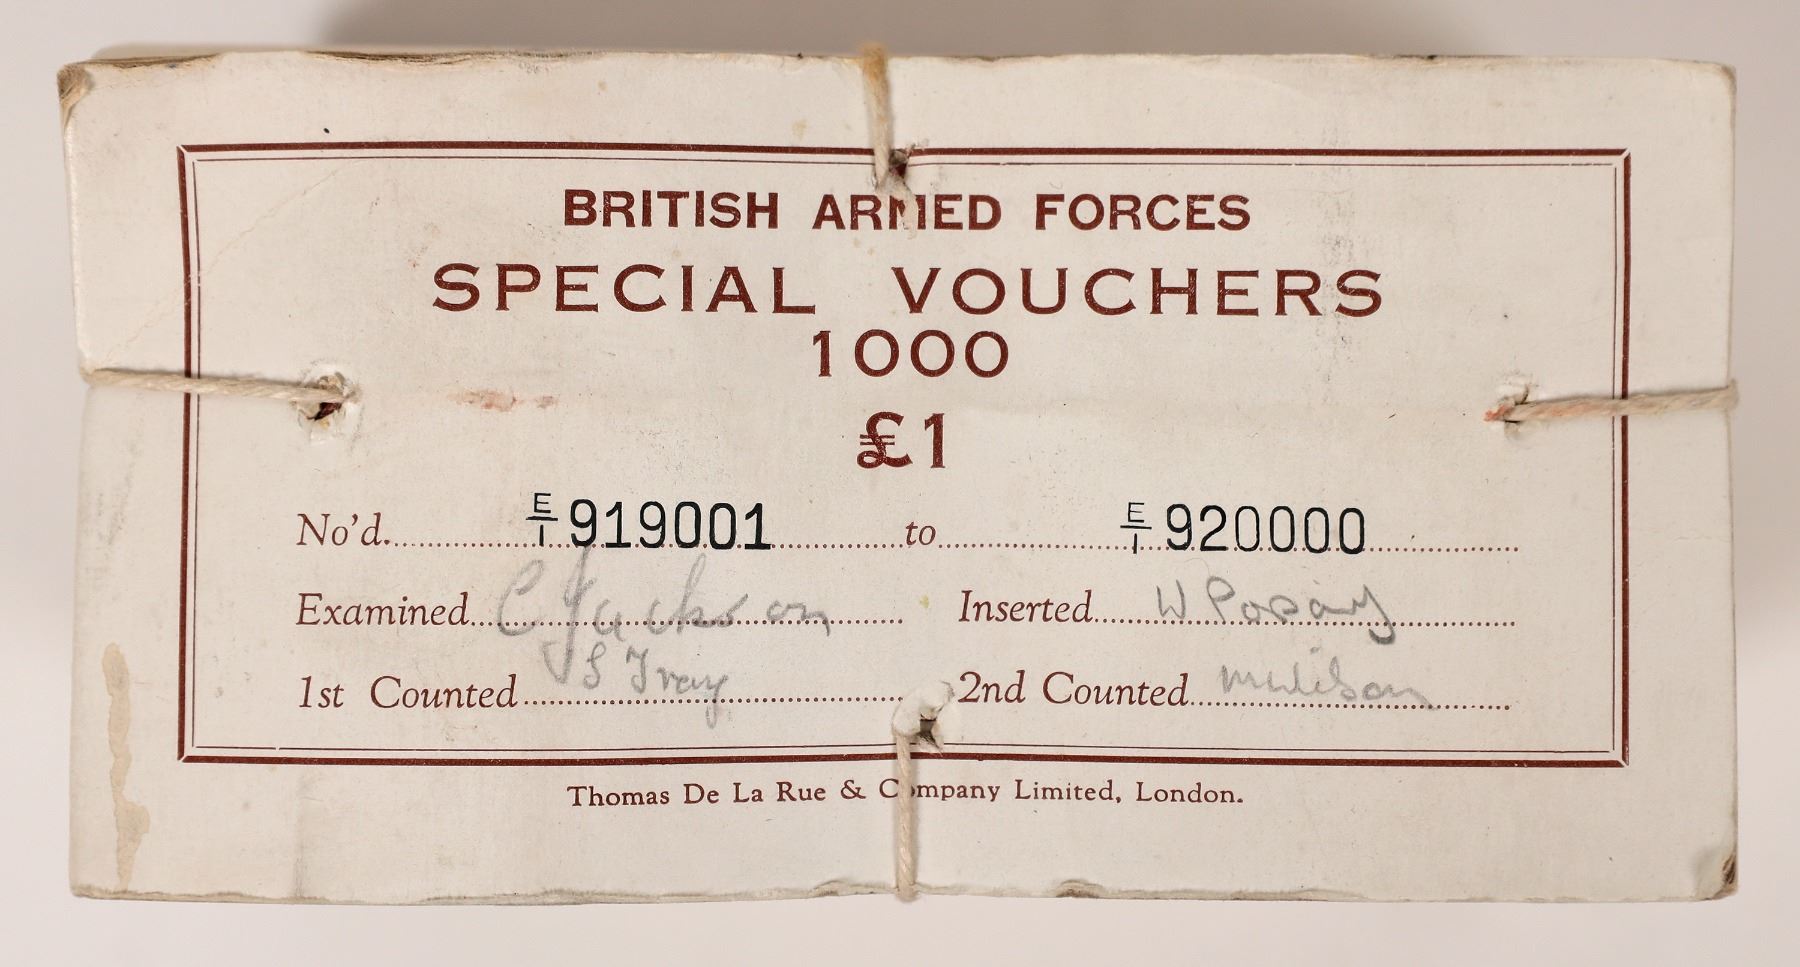 BRITISH ARMED FORCES
SPECIAL VOUCHERS
1000
£1
No'd. E/1 919001 to E/1 920000
Examined C Jackson Inserted W
1st Counted S 2nd Counted
Thomas De La Rue & Company Limited, London.